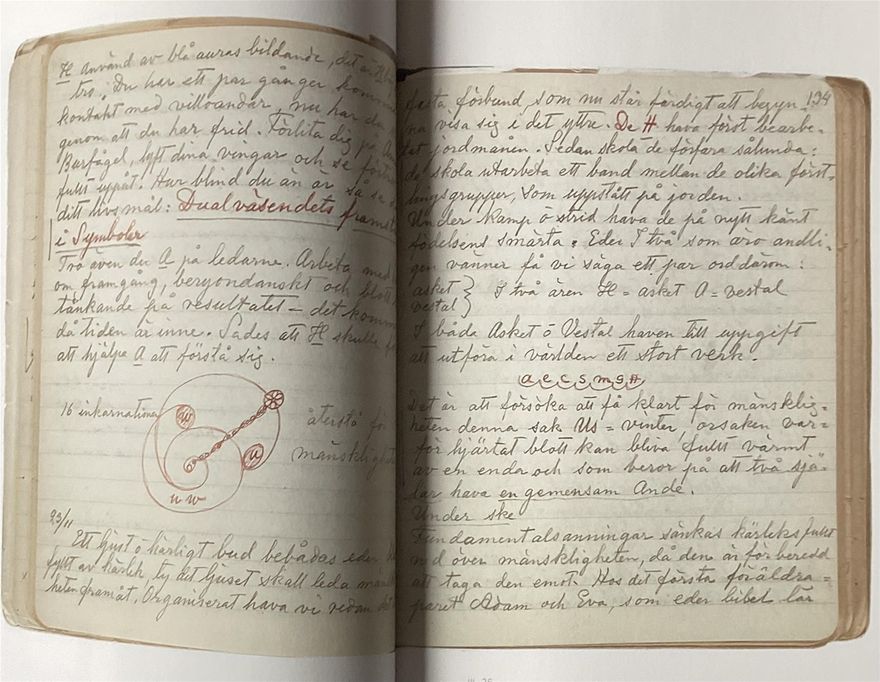 H använd av blå auras bildande, det är
tro. Du har ett par gånger
kontakt med villoandar, nu har du
genom att du har frid. Förlita dig på
Barfågel, lyft dina vingar och se
fullt uppåt. Hur blind du än är, så se
ditt livsmål: Dualväsendets
i Symboler
Tro även du A på ledarne. Arbeta med
om framgång, beroendanskt och blott
tänkande på resultatet – det
då tiden är inne. Sades att H skulle
att hjälpa A att förstå sig.
16 inkarnationer
w
u
u w
återstå för
mänskligheten
23/11
Ett ljust o härligt bud bebådas eder,
fyllt av kärlek, ty det ljuset skall leda
heten framåt. Organiserat hava vi redan det
134
fasta förbund, som nu står färdigt att begyn
na visa sig i det yttre. De H hava först bearbe-
tat jordmånen. Sedan skola de förfara sålunda:
de skola utarbeta ett band mellan de olika
som uppstått på jorden.
Under kamp o strid hava de på nytt känt
födelsens smärta. Eder I två som äro andli-
gen vänner få vi säga ett par ord därom:
asket
vestal } I två ären H = asket A = vestal
I båda Asket o Vestal haven till uppgift
att utföra i världen ett stort verk.
Det är att försöka att få klart för mänsklig=
heten denna sak Us = vinter, orsaken var=
för hjärtat blott kan bliva fullt värmt
av en enda och som beror på att två sjä=
lar hava en gemensam Ande.
Under ske
Fundamentalsanningar sänkas kärleksfullt
ned över mänskligheten, då den är förberedd
att taga den emot. Hos det första föräldra=
paret Adam och Eva, som eder bibel lär